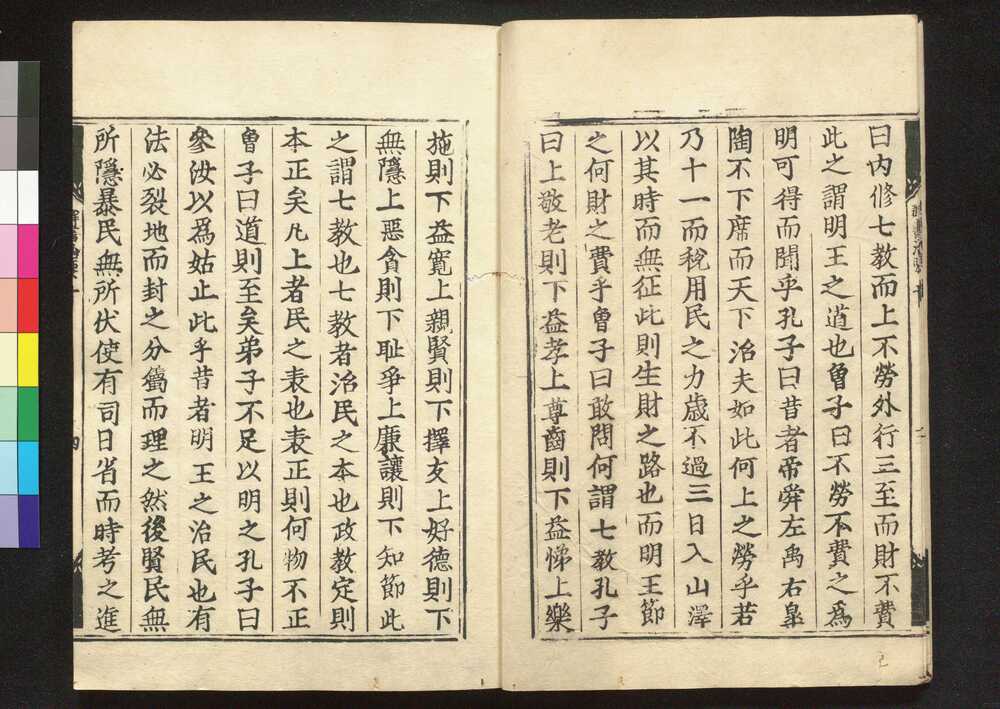 曰内修七教而上不勞外行三至而財不費
此之謂明王之道也曾子曰不勞不費之爲
明可得而聞乎孔子曰昔者帝舜左禹右皐
陶不下席而天下治夫如此何上之勞乎若
乃十一而稅用民之力歲不過三日入山澤
以其時而無征此則生財之路也而明王節
之何財之費乎曾子曰敢問何謂七教孔子
曰上敬老則下益孝上尊齒則下益悌上樂
施則下益寬上親賢則下擇友上好德則下
無隱上惡貪則下耻爭上廉讓則下知節此
之謂七教也七教者治民之本也政教定則
本正矣凡上者民之表也表正則何物不正
曾子曰道則至矣弟子不足以明之孔子曰
參汝以爲姑止此乎昔者明王之治民也有
法必裂地而封之分屬而理之然後賢民無
所隱暴民無所伏使有司日省而時考之進